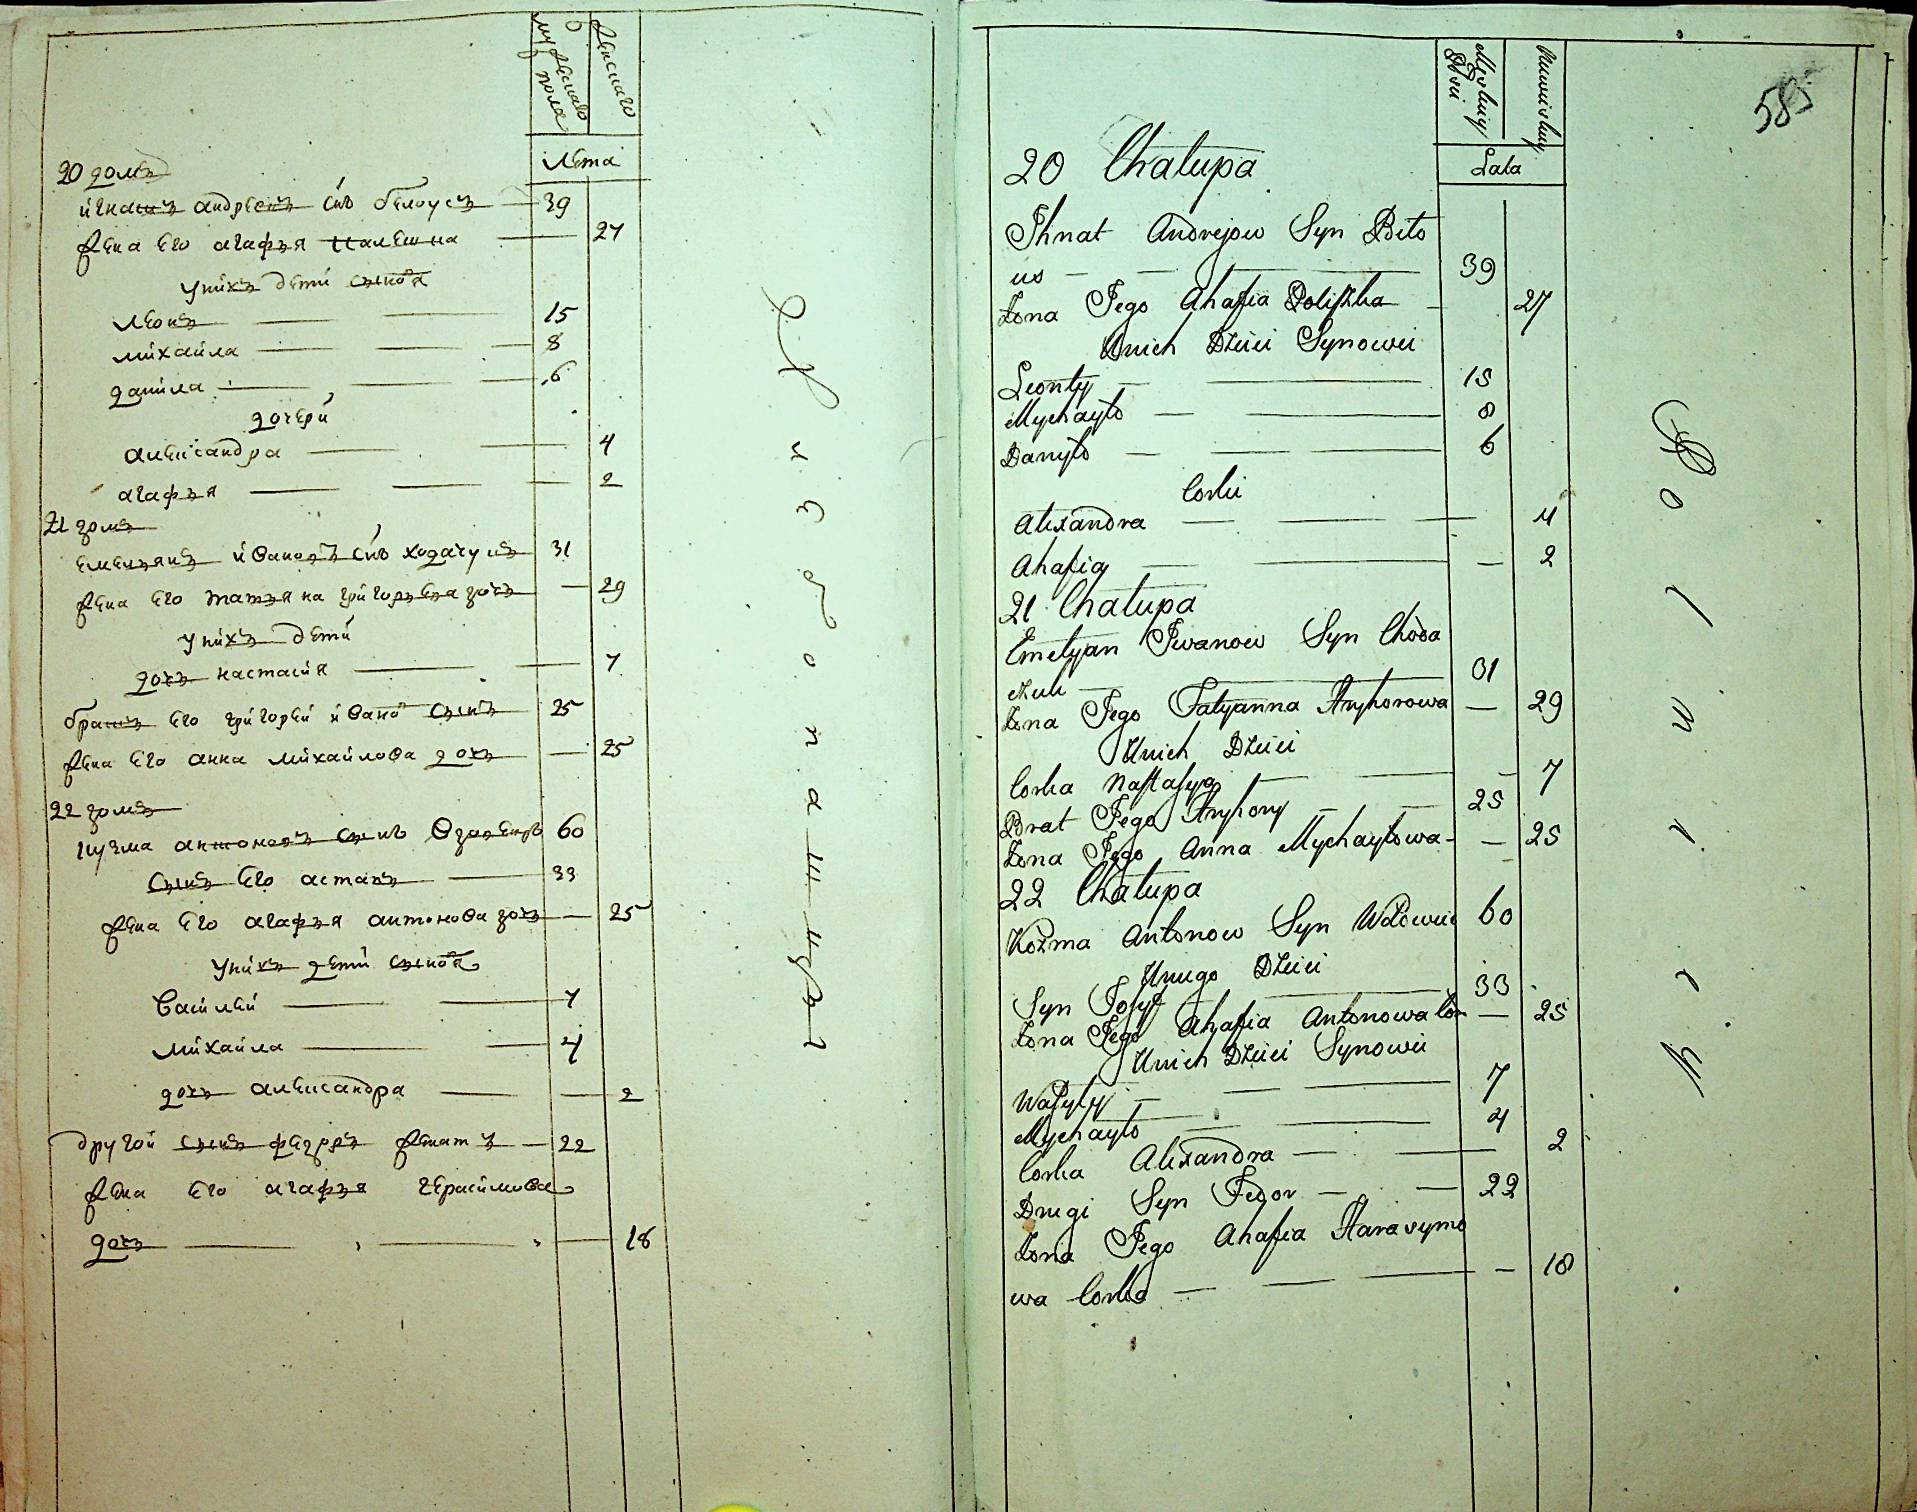 мужеска пола
женскаго
лета
20 домъ
игнатъ андреевъ снъ белоусъ 39
жена его агафья 27
у нихъ дети сынова
леонъ 15
михайла 8
данила 6
дочери
александра 4
агафья 2
21 домъ
емельянъ ивановъ снъ ходачукъ 31
жена его татьяна григорьева дочь 29
у нихъ дети
дочь настасия 7
братъ его григорей ивано сынъ 25
жена его анна михайлова дочь 25
22 домъ
кузма антоновъ сынъ 60
сынъ его астапъ 33
жена его агафья антонова дочь 25
у нихъ дети сынова
василей 7
михайла 4
дочь александра 2
другой сынъ федоръ женатъ 22
жена его агафья герасимова
дочь 18
585
Lata
20 Chalupa
Ihnat Andrejow Syn Biło
us 39
Żona Jego Ahafia Poliszka 27
U nich Dzieci Synowie
Leonty 15
Mychayło 8
Danyło 6
Corki
Alexandra 4
Ahafia 2
21 Chalupa
Emelyan Iwanow Syn Choda
czuk 31
Żona Jego Tatyanna Hryhorowa 29
U nich Dzieci
Corka Nastasya 7
Brat Jego Hryhory 25
Żona Jego Anna Mychayłowa 25
22 Chalupa
Kozma Antonow Syn 60
U niego Dzieci
Syn Josyf 33
Żona Jego Ahafia Antonowa Cor 25
U nich Dzieci Synowie
Wasyly 7
Mychayło 4
Corka Alexandra 2
Drugi Syn Fedor 22
Żona Jego Ahafia Harasymo
wa Corka 18